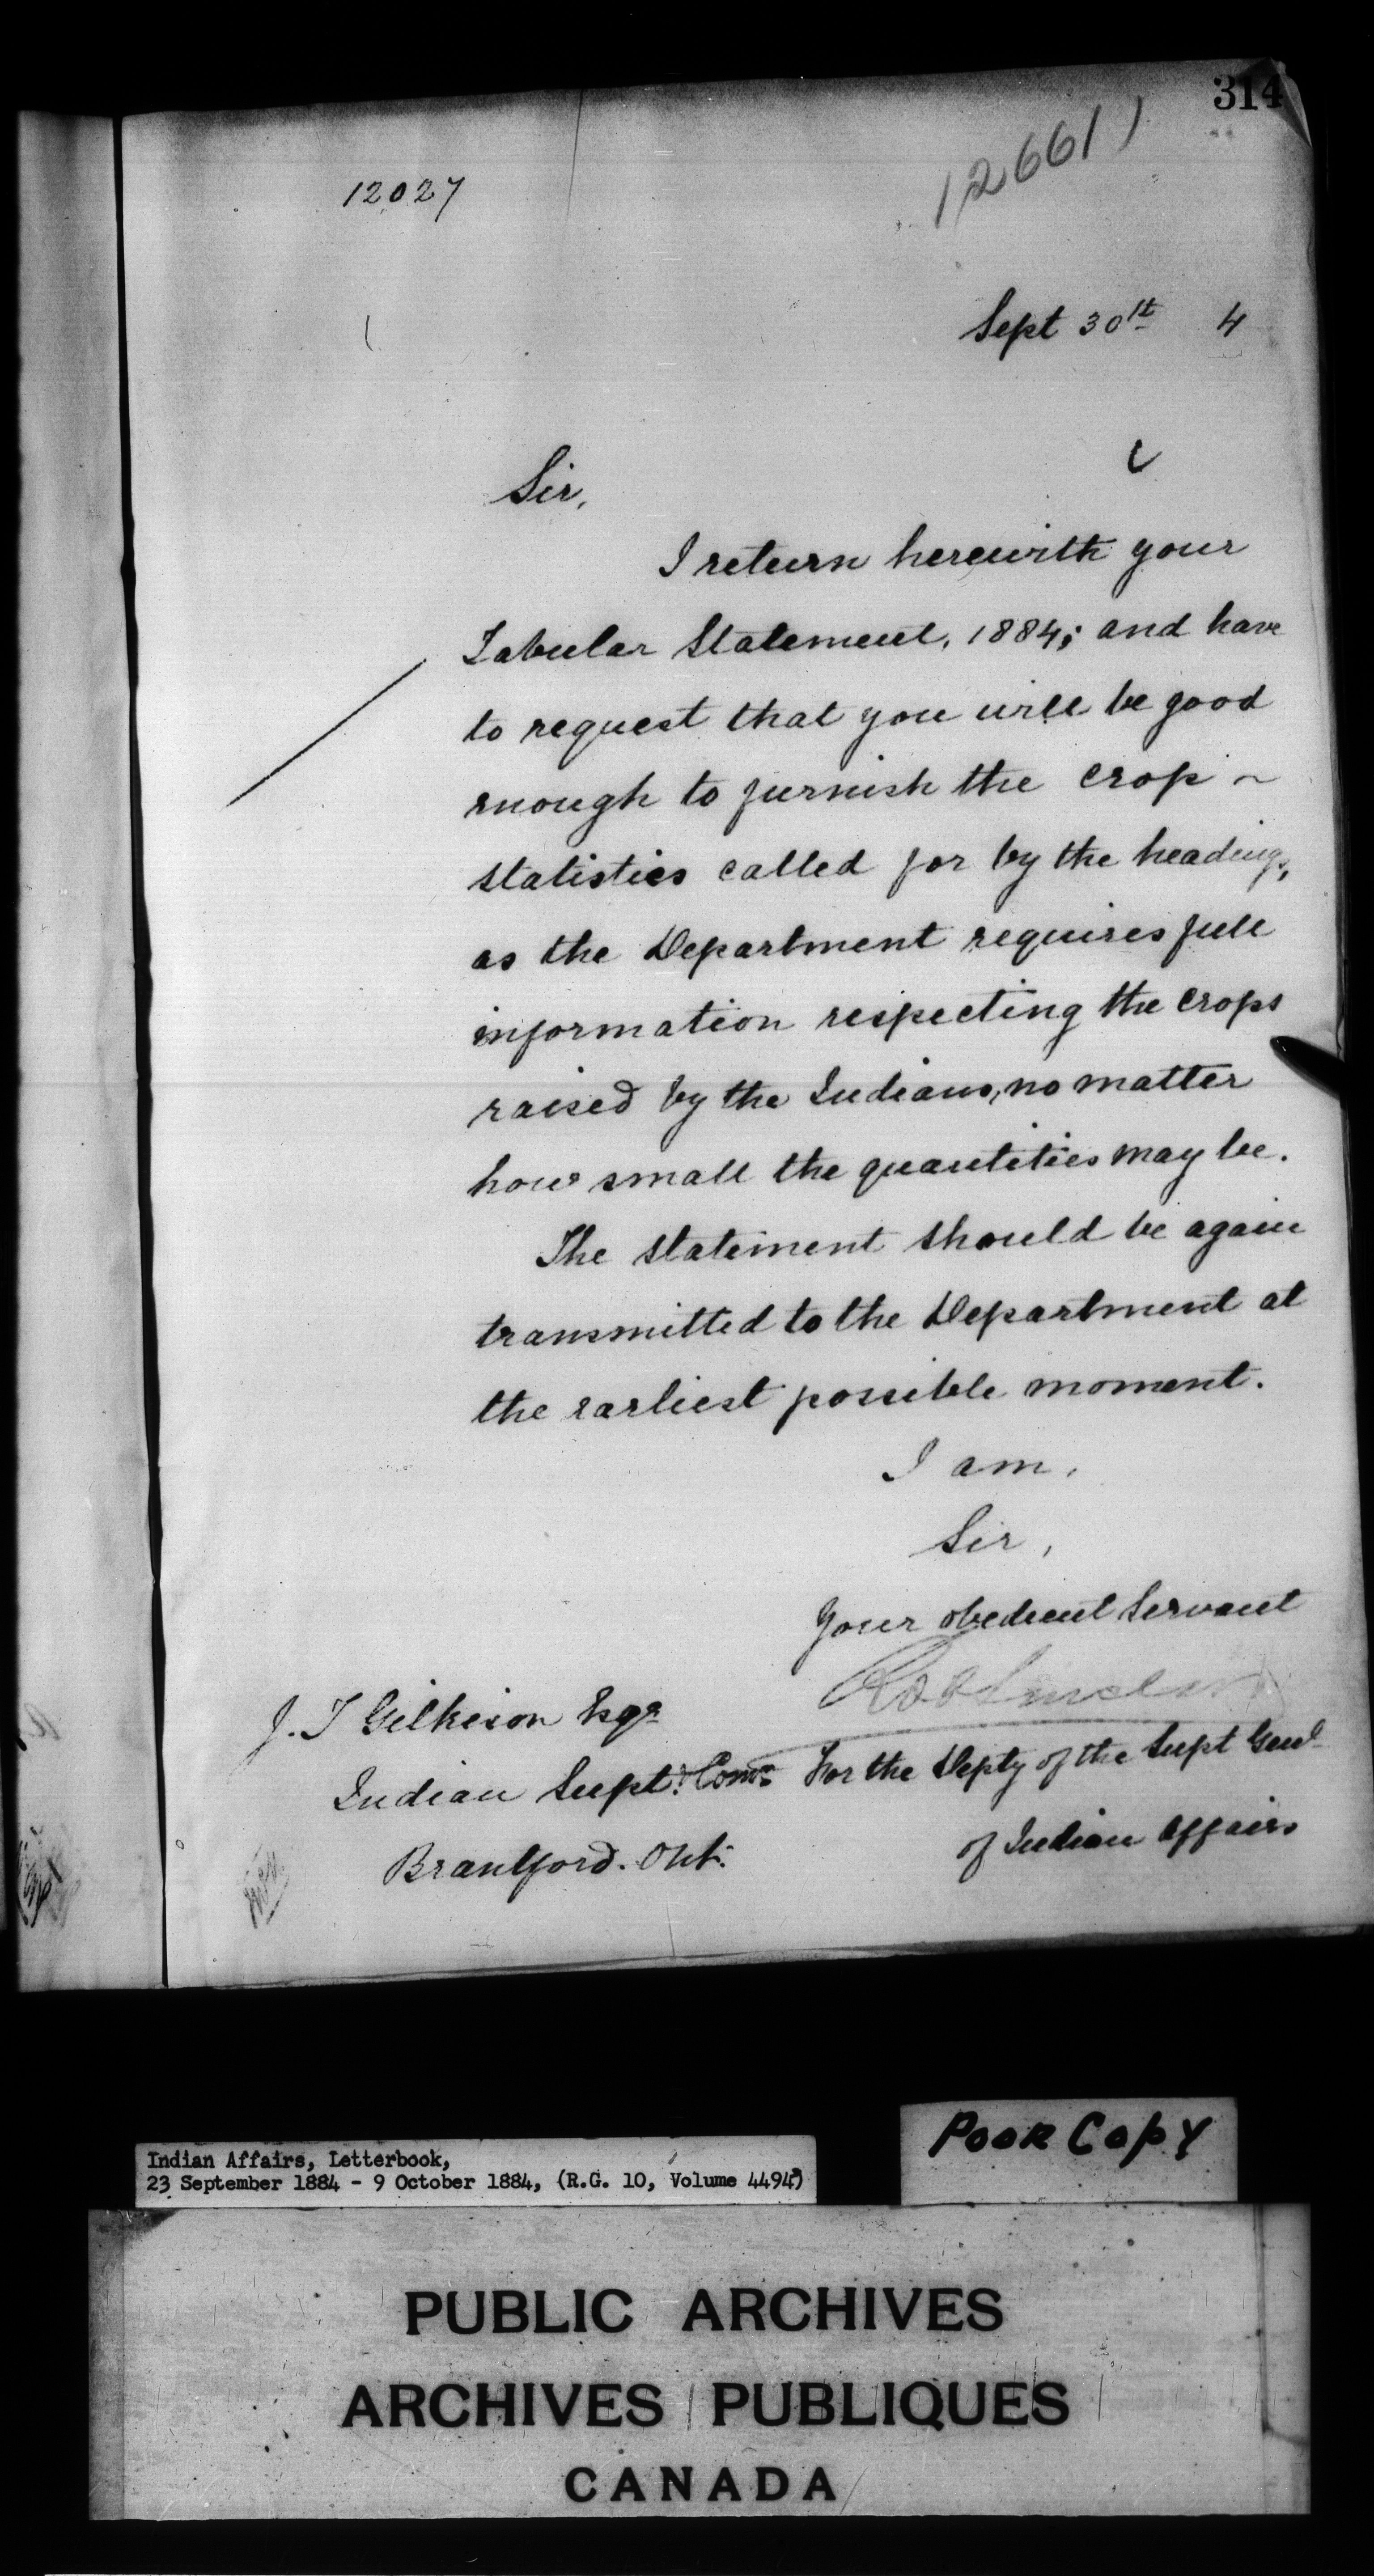 314
12661)
12027
Sept 30th 4
Sir,
I return herewith your
Tabular Statement, 1884; and have
to request that you will be good
enough to furnish the crop ~
statistics called for by the headings,
as the Department requires full
information respecting the crops
raised by the Indians, no matter
how small the quantities may be.
The statement should be again
transmitted to the Department at
the earliest possible moment.
I am,
Sir,
Your obedient Servant
Rob Sinclair
For the Depty of the Supt Genl
of Indian Affairs
J. T Gilkison Esqr
Indian Supt: & Comr
Brantford. Ont.
Indian Affairs, Letterbook,
23 September 1884 - 9 October 1884, (R.G. 10, Volume 4494)
POOR COPY
PUBLIC ARCHIVES
ARCHIVES PUBLIQUES
CANADA